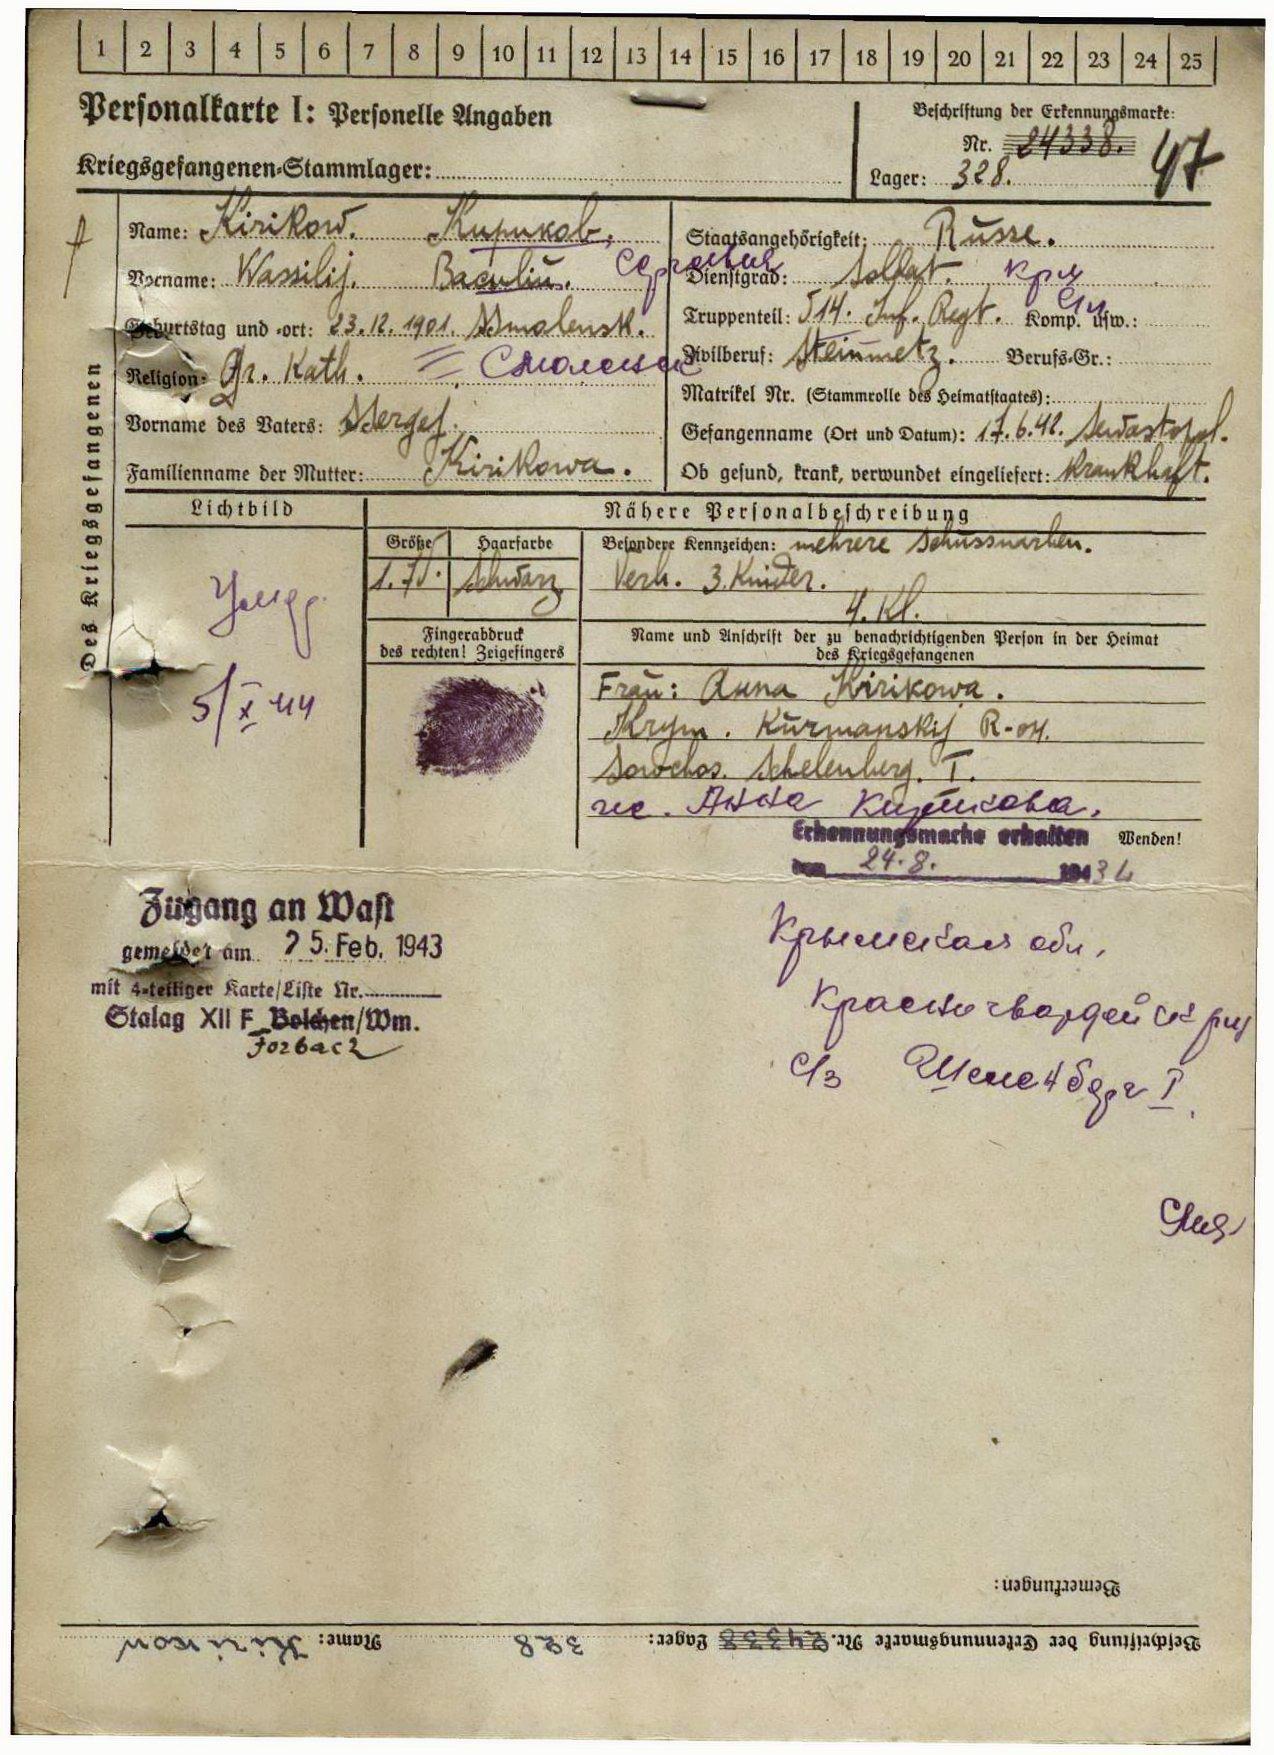 1 2 3 4 5 6 7 8 9 10 11 12 13 14 15 16 17 18 19 20 21 22 23 24 25
Personalkarte I: Personelle Angaben
Kriegsgefangenen-Stammlager:
Beschriftung der Erkennungsmarke:
Nr. 24338. 47
Lager: 328.
Des Kriegsgefangenen
Name: Kirikow. Кириков.
Vorname: Wassilij. Василий. Сергеевич
Geburtstag und -ort: 23.12.1901. Smolensk.
Religion: Gr. Kath. Смоленск
Vorname des Vaters: Sergej.
Familienname der Mutter: Kirikowa.
Staatsangehörigkeit: Russe.
Dienstgrad: Soldat. кр-ц
Truppenteil: 514. Inf. Regt. Komp. usw.:
Zivilberuf: Steinmetz. Berufs-Gr.:
Matrikel Nr. (Stammrolle des Heimatstaates):
Gefangenname (Ort und Datum): 17.6.42. Sewastopol.
Ob gesund, krank, verwundet eingeliefert: krankhaft.
Lichtbild
Nähere Personalbeschreibung
Größe Haarfarbe
Schwarz
Besondere Kennzeichen: mehrere Schussnarben.
Verh. 3. Kinder.
4. Kl.
Fingerabdruck
des rechten! Zeigefingers
Name und Anschrift der zu benachrichtigenden Person in der Heimat
des Kriegsgefangenen
Frau: Anna Kirikowa.
Krym. Kurmanskij R-on.
Sowchos. Schelenberg. I.
же. Анна Кирикова.
Умер
5/X 44
Erkennungsmarke erhalten
Wenden!
24.8.
Zugang an Wast
gemeldet am 25. Feb. 1943
mit 4-teiliger Karte/Liste Nr.
Stalag XII F Bolchen/Wm.
Forbach
Крымская обл.
Красногвардейск р-н
с/з Шеленберг I
Bemerkungen:
Beschriftung der Erkennungsmarke Nr. 24338 Lager: 328 Name: Kirikow